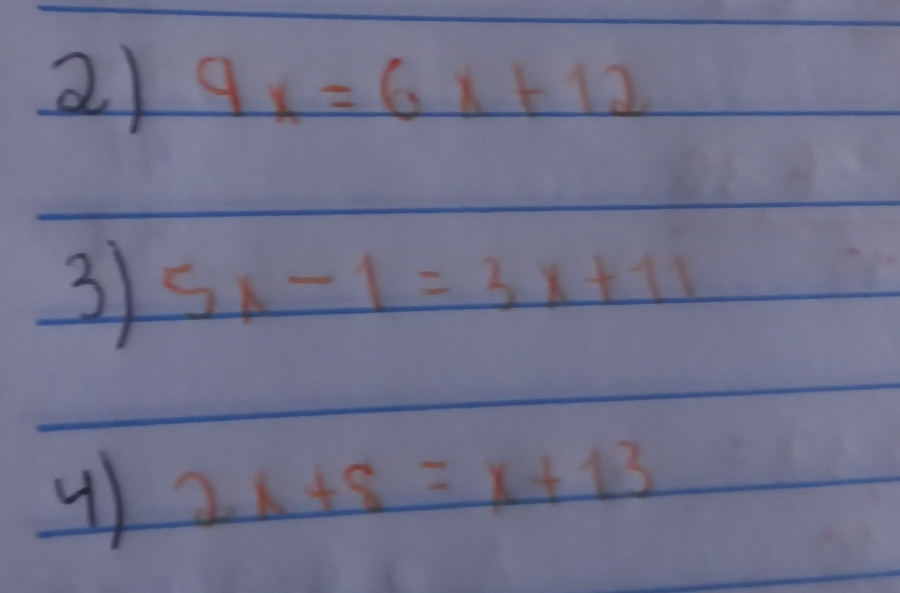 2) 9x = 6x + 12
3) 5x - 1 = 3x + 11
4) 2x + 8 = x + 13